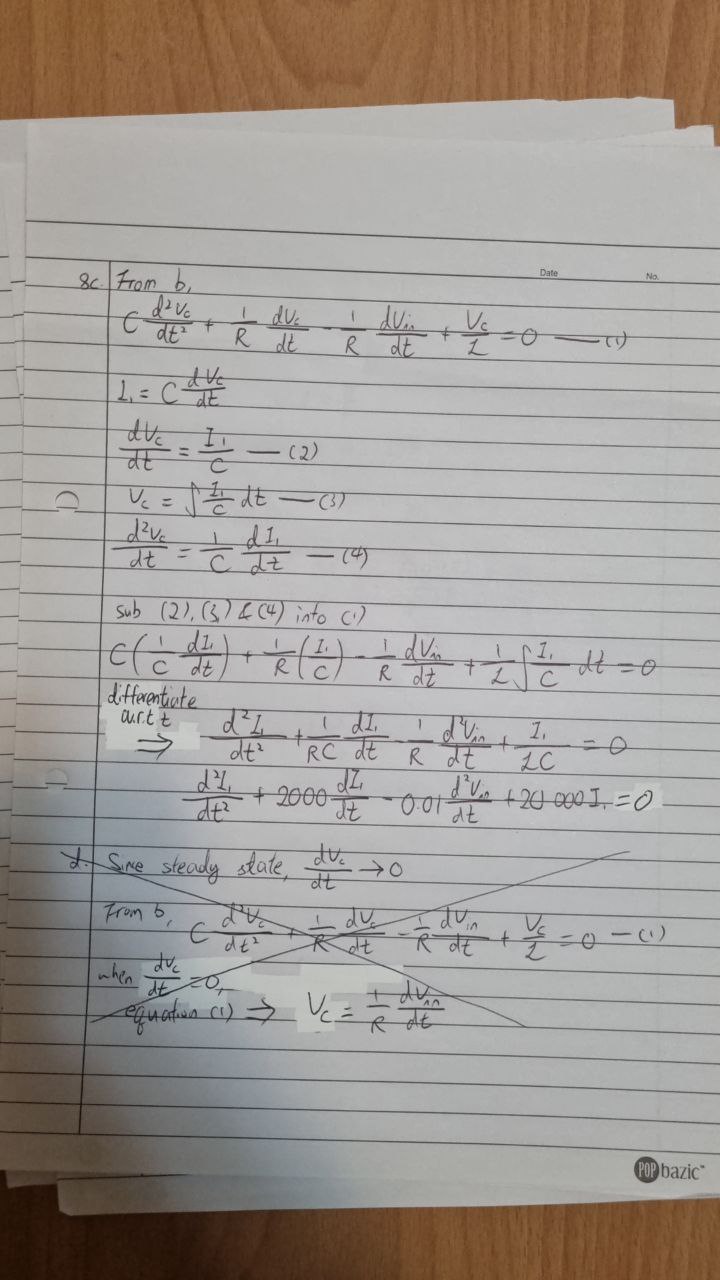 Date No.
8c. From b,
C d²Vc/dt² + 1/R dVc/dt - 1/R dVin/dt + Vc/L = 0 — (1)
I₁ = C dVc/dt
dVc/dt = I₁/C — (2)
Vc = ∫ I₁/C dt — (3)
d²Vc/dt = 1/C dI₁/dt — (4)
sub (2), (3) & (4) into (1)
C(1/C dI₁/dt) + 1/R (I₁/C) - 1/R dVin/dt + 1/L ∫ I₁/C dt = 0
differentiate
w.r.t t
⇒ d²I₁/dt² + 1/RC dI₁/dt - 1/R d²Vin/dt + I₁/LC = 0
d²I₁/dt² + 2000 dI₁/dt - 0.01 d²Vin/dt + 20 000 I₁ = 0
d. Since steady state, dVc/dt → 0
From b, C d²Vc/dt² + 1/R dVc/dt - 1/R dVin/dt + Vc/L = 0 — (1)
when dVc/dt = 0,
equation (1) ⇒ Vc = 1/R dVin/dt
POP bazic